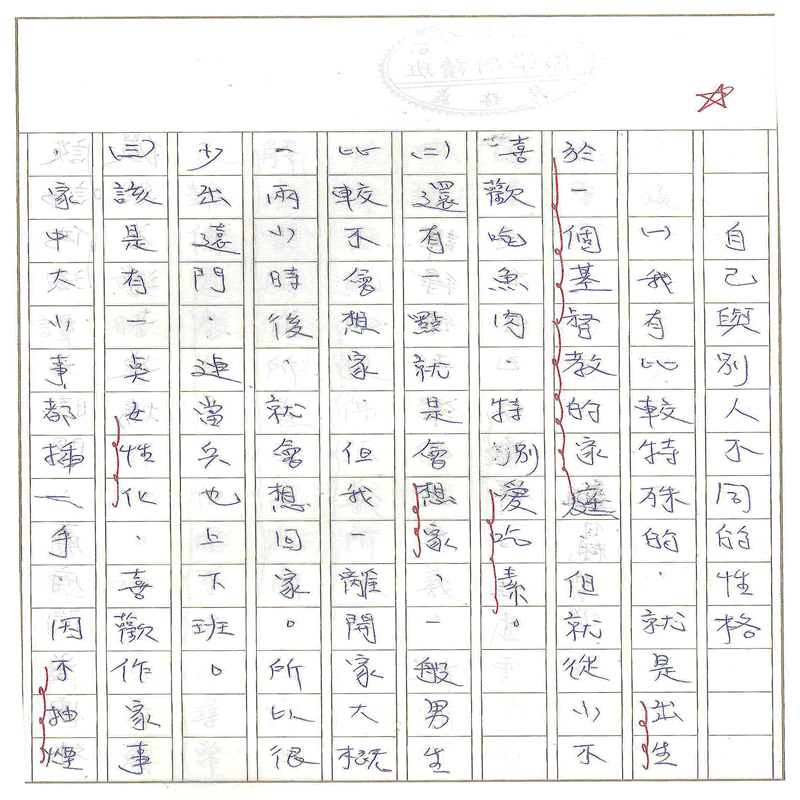 自己與別人不同的性格
(一)我有比較特殊的.就是出生
於一個基督教的家庭但就從小不
喜歡吃魚肉特別愛吃素。
(二)還有一點就是會想家、一般男生
比較不會想家.但我一離開家大概
一兩小時後.就會想回家。所以很
少出遠門.連當兵也上下班。
(三)該是有一點女性化.喜歡作家事
.家中大小事都插一手.因不抽煙